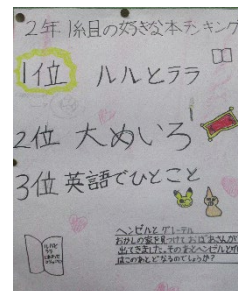 2年1組目の好きな本ランキング
1位 ルルとララ
2位 大めいろ
3位 英語でひとこと
ヘンゼルとグレーテル
おかしの家を見つけておばあさんが
出てきました。そのあとヘンゼルとグ
はこのあとどなるのでしょうか?